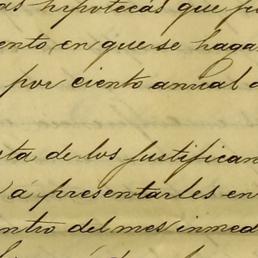 as hipotecas que fu
ento en que se haga
por ciento anual a
ta de los justifican
á presentarles en
ntro del mes inmed